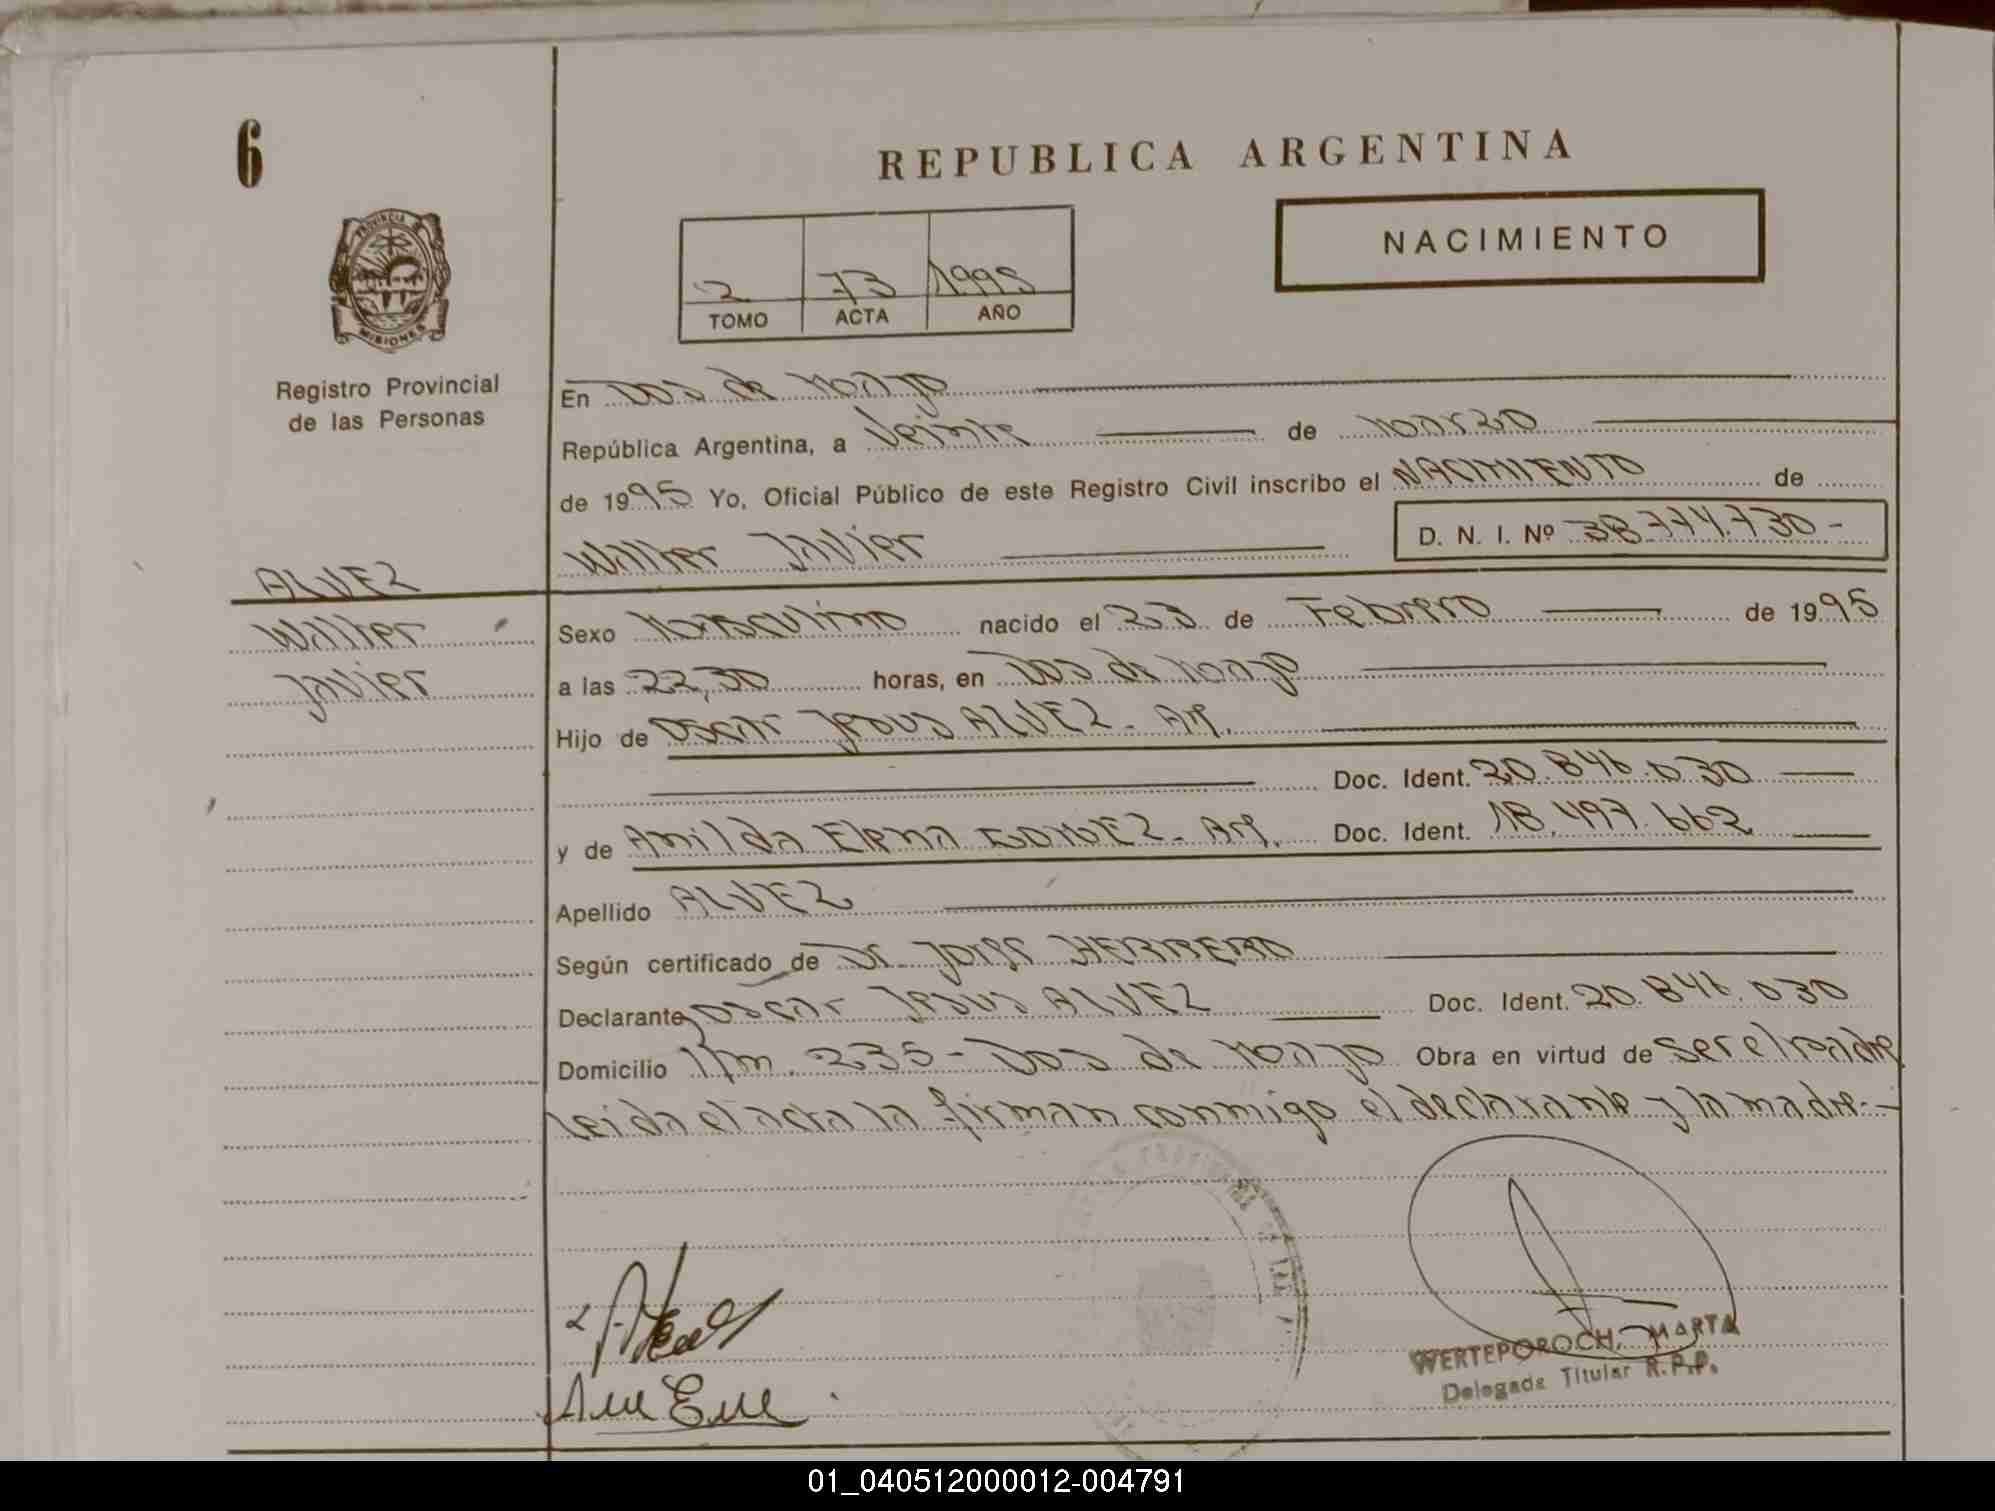 6
REPUBLICA ARGENTINA
NACIMIENTO
2 73 1995
TOMO ACTA AÑO
PROVINCIA DE
MISIONES
Registro Provincial
de las Personas
En Dos de Mayo
República Argentina, a Veinte de Marzo
de 1995 Yo, Oficial Público de este Registro Civil inscribo el NACIMIENTO de
Walter Javier D. N. I. Nº 38.774.730-
ALVEZ
Walter
Javier
Sexo Masculino nacido el 23 de Febrero de 1995
a las 22,30 horas, en Dos de Mayo
Hijo de Oscar Jesus ALVEZ - Arg.
Doc. Ident. 20.846.030
y de Anilda Elena GOMEZ - Arg. Doc. Ident. 18.497.662
Apellido ALVEZ
Según certificado de Dr. Jorge HERRERO
Declarante Oscar Jesus ALVEZ Doc. Ident. 20.846.030
Domicilio Km. 235 - Dos de Mayo Obra en virtud de ser el padre
Leida el acta la firman conmigo el declarante y la madre.-
WERTEPOROCH, MARTA
Delegada Titular R.P.P.
01_040512000012-004791